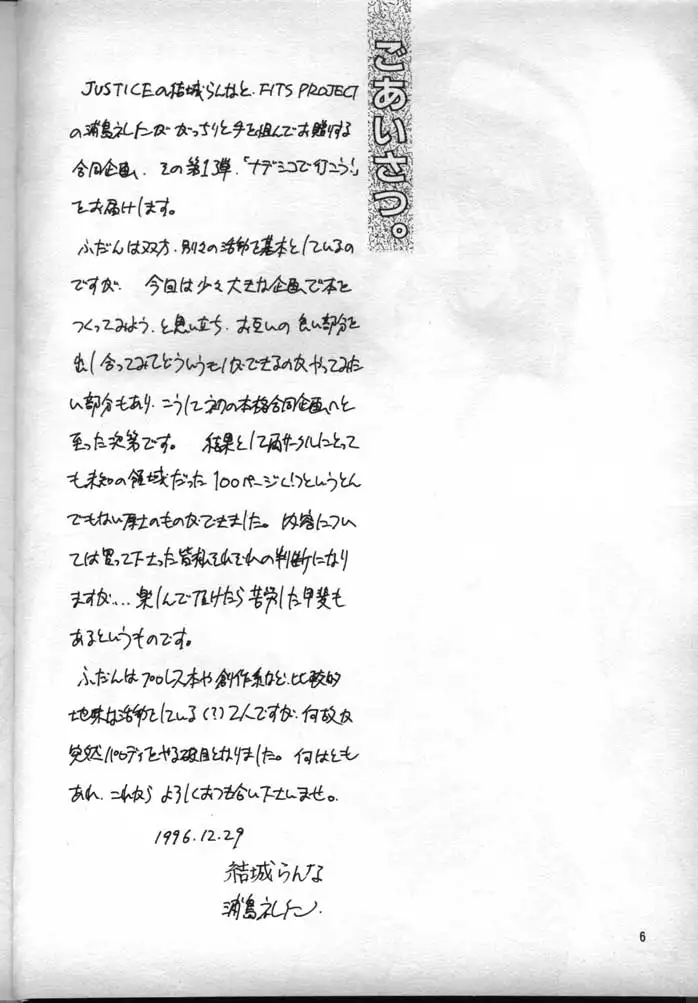 ごあいさつ。
JUSTICEの結城らんなと、FITS PROJECT
の浦島礼仁がガッちりと手を組んでお贈りする
合同企画、その第1弾、「ナデシコで行こう!」
をお届けします。
ふだんは双方、別々の活動を基本としているの
ですが、今回は少々大きな企画で本を
つくってみよう、と思い立ち、お互いの良い部分を
出し合ってみてどういうもんができるのかやってみた
い部分もあり、こうして初の本格合同企画へと
至った次第です。結果として両サークルにとって
も未知の領域だった100ページ(!)というとん
でもない厚さのものができました。内容につい
ては買って下さった皆様それぞれの判断になり
ますが...、楽しんで頂けたら苦労した甲斐も
あるというものです。
ふだんはプロレス本や創作系など、比較的
地味な活動をしている(?)2人ですが、何故か
突然パロディをやる破目となりました。何はとも
あれ、これから よろしくおつき合い下さいませ。
1996.12.29
結城らんな
浦島
6